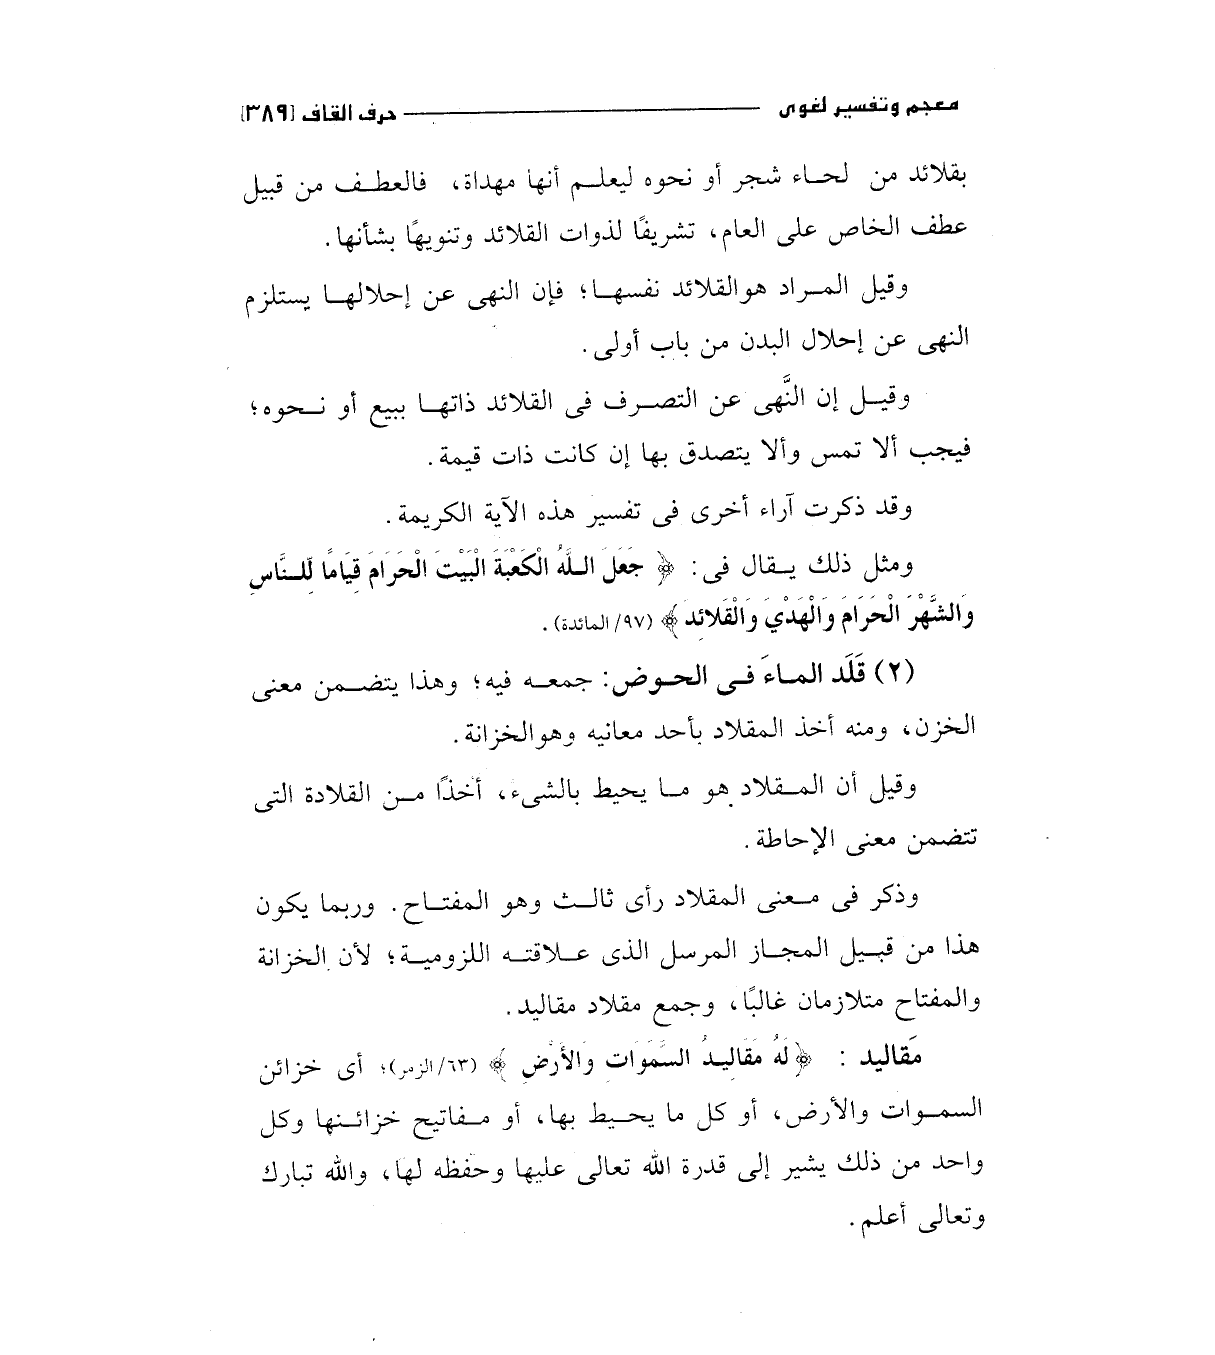 معجم وتفسير لغوى
حرف القاف [٣٨٩]
بقلائد من لحاء شجر أو نحوه ليعلم أنها مهداة، فالعطف من قبيل
عطف الخاص على العام، تشريفًا لذوات القلائد وتنويهًا بشأنها.
وقيل المراد هوالقلائد نفسها؛ فإن النهى عن إحلالها يستلزم
النهى عن إحلال البدن من باب أولى.
وقيل إن النَّهى عن التصرف فى القلائد ذاتها ببيع أو نحوه؛
فيجب ألا تمس وألا يتصدق بها إن كانت ذات قيمة.
وقد ذكرت آراء أخرى فى تفسير هذه الآية الكريمة.
ومثل ذلك يقال فى: ﴿ جَعَلَ اللَّهُ الْكَعْبَةَ الْبَيْتَ الْحَرَامَ قِيَامًا لِّلنَّاسِ
وَالشَّهْرَ الْحَرَامَ وَالْهَدْيَ وَالْقَلائِدَ ﴾ (٩٧/ المائدة).
(٢) قَلَد الماءَ فى الحوض: جمعه فيه؛ وهذا يتضمن معنى
الخزن، ومنه أخذ المقلاد بأحد معانيه وهوالخزانة.
وقيل أن المقلاد هو ما يحيط بالشىء، أخذًا من القلادة التى
تتضمن معنى الإحاطة.
وذكر فى معنى المقلاد رأى ثالث وهو المفتاح. وربما يكون
هذا من قبيل المجاز المرسل الذى علاقته اللزومية؛ لأن الخزانة
والمفتاح متلازمان غالبًا، وجمع مقلاد مقاليد.
مَقاليد : ﴿ لَهُ مَقَاليدُ السَّمَوات وَالأَرْض ﴾ (٦٣/الزمر)؛ أى خزائن
السموات والأرض، أو كل ما يحيط بها، أو مفاتيح خزائنها وكل
واحد من ذلك يشير إلى قدرة الله تعالى عليها وحفظه لها، والله تبارك
وتعالى أعلم.